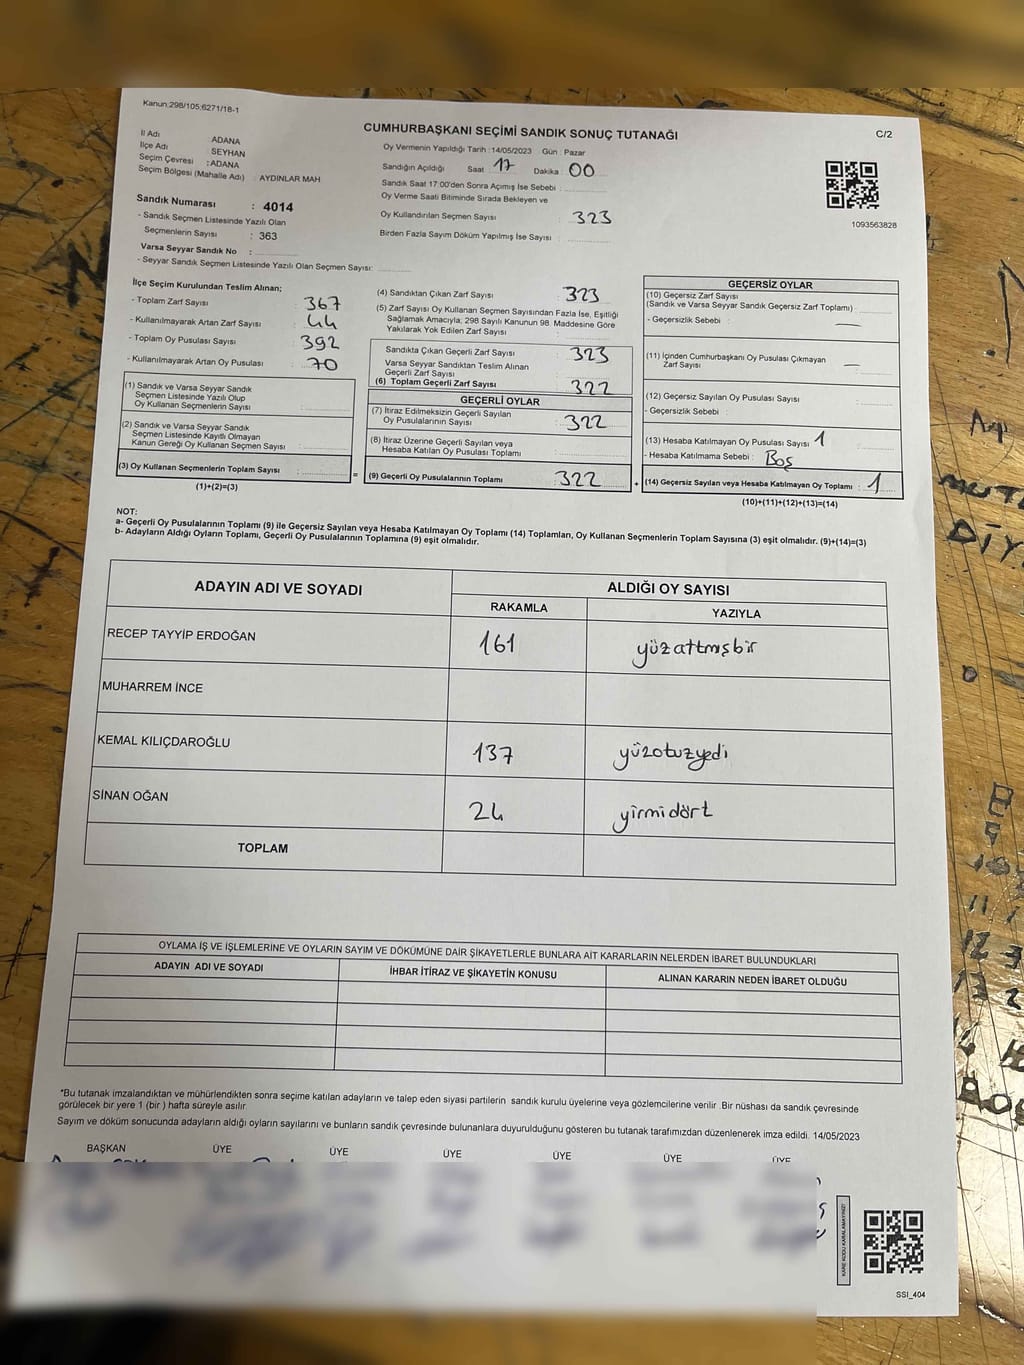 Kanun:298/105;6271/18-1
CUMHURBAŞKANI SEÇİMİ SANDIK SONUÇ TUTANAĞI
C/2
İl Adı : ADANA
İlçe Adı : SEYHAN
Seçim Çevresi : ADANA
Seçim Bölgesi (Mahalle Adı) : AYDINLAR MAH
Sandık Numarası : 4014
- Sandık Seçmen Listesinde Yazılı Olan
Seçmenlerin Sayısı : 363
Varsa Seyyar Sandık No :
- Seyyar Sandık Seçmen Listesinde Yazılı Olan Seçmen Sayısı:
Oy Vermenin Yapıldığı Tarih : 14/05/2023 Gün : Pazar
Sandığın Açıldığı Saat : 17 Dakika : 00
Sandık Saat 17:00'den Sonra Açımış İse Sebebi :
Oy Verme Saati Bitiminde Sırada Bekleyen ve
Oy Kullandırılan Seçmen Sayısı : 323
Birden Fazla Sayım Döküm Yapılmış İse Sayısı :
1093563828
İlçe Seçim Kurulundan Teslim Alınan;
- Toplam Zarf Sayısı : 367
- Kullanılmayarak Artan Zarf Sayısı : 44
- Toplam Oy Pusulası Sayısı : 392
- Kullanılmayarak Artan Oy Pusulası : 70
(1) Sandık ve Varsa Seyyar Sandık
Seçmen Listesinde Yazılı Olup
Oy Kullanan Seçmenlerin Sayısı :
(2) Sandık ve Varsa Seyyar Sandık
Seçmen Listesinde Kayıtlı Olmayan
Kanun Gereği Oy Kullanan Seçmen Sayısı :
(3) Oy Kullanan Seçmenlerin Toplam Sayısı :
(1)+(2)=(3)
(4) Sandıktan Çıkan Zarf Sayısı : 323
(5) Zarf Sayısı Oy Kullanan Seçmen Sayısından Fazla İse, Eşitliği
Sağlamak Amacıyla; 298 Sayılı Kanunun 98. Maddesine Göre
Yakılarak Yok Edilen Zarf Sayısı :
Sandıkta Çıkan Geçerli Zarf Sayısı : 323
Varsa Seyyar Sandıktan Teslim Alınan
Geçerli Zarf Sayısı :
(6) Toplam Geçerli Zarf Sayısı : 322
GEÇERLİ OYLAR
(7) İtiraz Edilmeksizin Geçerli Sayılan
Oy Pusulalarının Sayısı : 322
(8) İtiraz Üzerine Geçerli Sayılan veya
Hesaba Katılan Oy Pusulası Toplamı :
= (9) Geçerli Oy Pusulalarının Toplamı : 322
GEÇERSİZ OYLAR
(10) Geçersiz Zarf Sayısı
(Sandık ve Varsa Seyyar Sandık Geçersiz Zarf Toplamı) :
- Geçersizlik Sebebi : —
(11) İçinden Cumhurbaşkanı Oy Pusulası Çıkmayan
Zarf Sayısı : —
(12) Geçersiz Sayılan Oy Pusulası Sayısı :
- Geçersizlik Sebebi :
(13) Hesaba Katılmayan Oy Pusulası Sayısı : 1
- Hesaba Katılmama Sebebi : Boş
+ (14) Geçersiz Sayılan veya Hesaba Katılmayan Oy Toplamı : 1
(10)+(11)+(12)+(13)=(14)
NOT:
a- Geçerli Oy Pusulalarının Toplamı (9) ile Geçersiz Sayılan veya Hesaba Katılmayan Oy Toplamı (14) Toplamları, Oy Kullanan Seçmenlerin Toplam Sayısına (3) eşit olmalıdır. (9)+(14)=(3)
b- Adayların Aldığı Oyların Toplamı, Geçerli Oy Pusulalarının Toplamına (9) eşit olmalıdır.
ADAYIN ADI VE SOYADI ALDIĞI OY SAYISI
RAKAMLA YAZIYLA
RECEP TAYYİP ERDOĞAN 161 yüzattmışbir
MUHARREM İNCE
KEMAL KILIÇDAROĞLU 137 yüzotuzyedi
SİNAN OĞAN 24 yirmidört
TOPLAM
OYLAMA İŞ VE İŞLEMLERİNE VE OYLARIN SAYIM VE DÖKÜMÜNE DAİR ŞİKAYETLERLE BUNLARA AİT KARARLARIN NELERDEN İBARET BULUNDUKLARI
ADAYIN ADI VE SOYADI İHBAR İTİRAZ VE ŞİKAYETİN KONUSU ALINAN KARARIN NEDEN İBARET OLDUĞU
*Bu tutanak imzalandıktan ve mühürlendikten sonra seçime katılan adayların ve talep eden siyasi partilerin sandık kurulu üyelerine veya gözlemcilerine verilir. Bir nüshası da sandık çevresinde
görülecek bir yere 1 (bir ) hafta süreyle asılır.
Sayım ve döküm sonucunda adayların aldığı oyların sayılarını ve bunların sandık çevresinde bulunanlara duyurulduğunu gösteren bu tutanak tarafımızdan düzenlenerek imza edildi. 14/05/2023
BAŞKAN ÜYE ÜYE ÜYE ÜYE ÜYE ÜYE
KARE KODU KARALAMAYINIZ!
SSİ_404